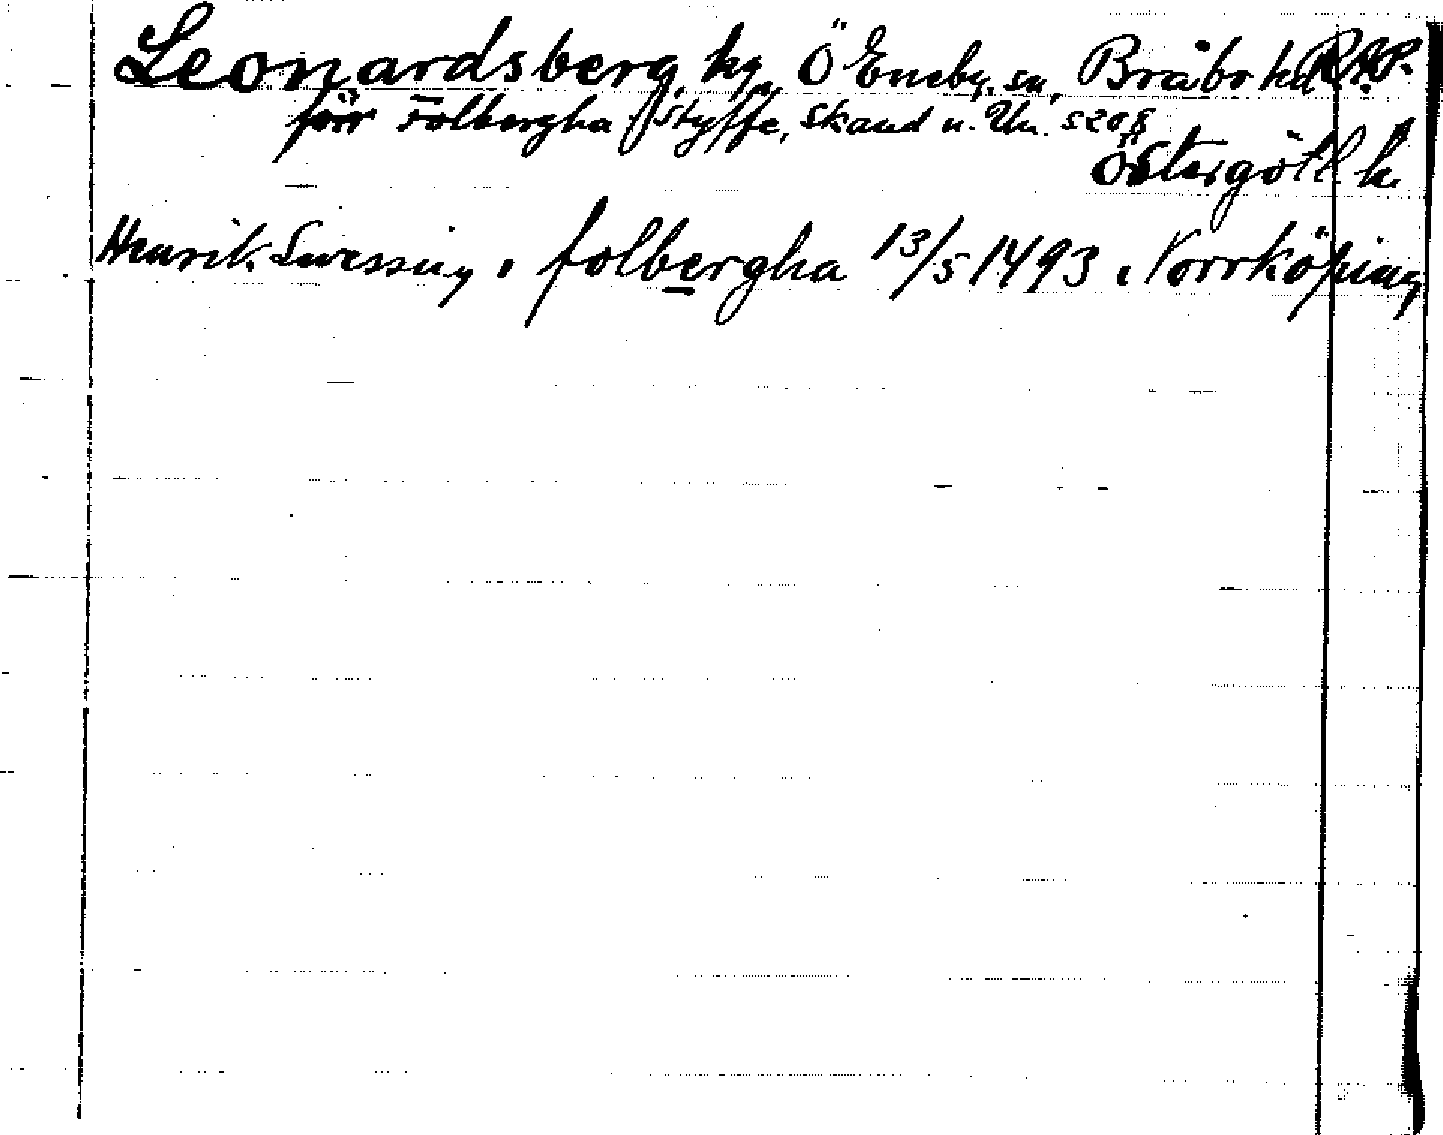 Leonardsberg, hg, Ö Eneby, sn, Bråbo hd R.A.P.
förr Folbergha Styffe, Skand u. Un. s 208
Östergötl. l.
Henrik i folbergha 13/5 1493. Norrköping